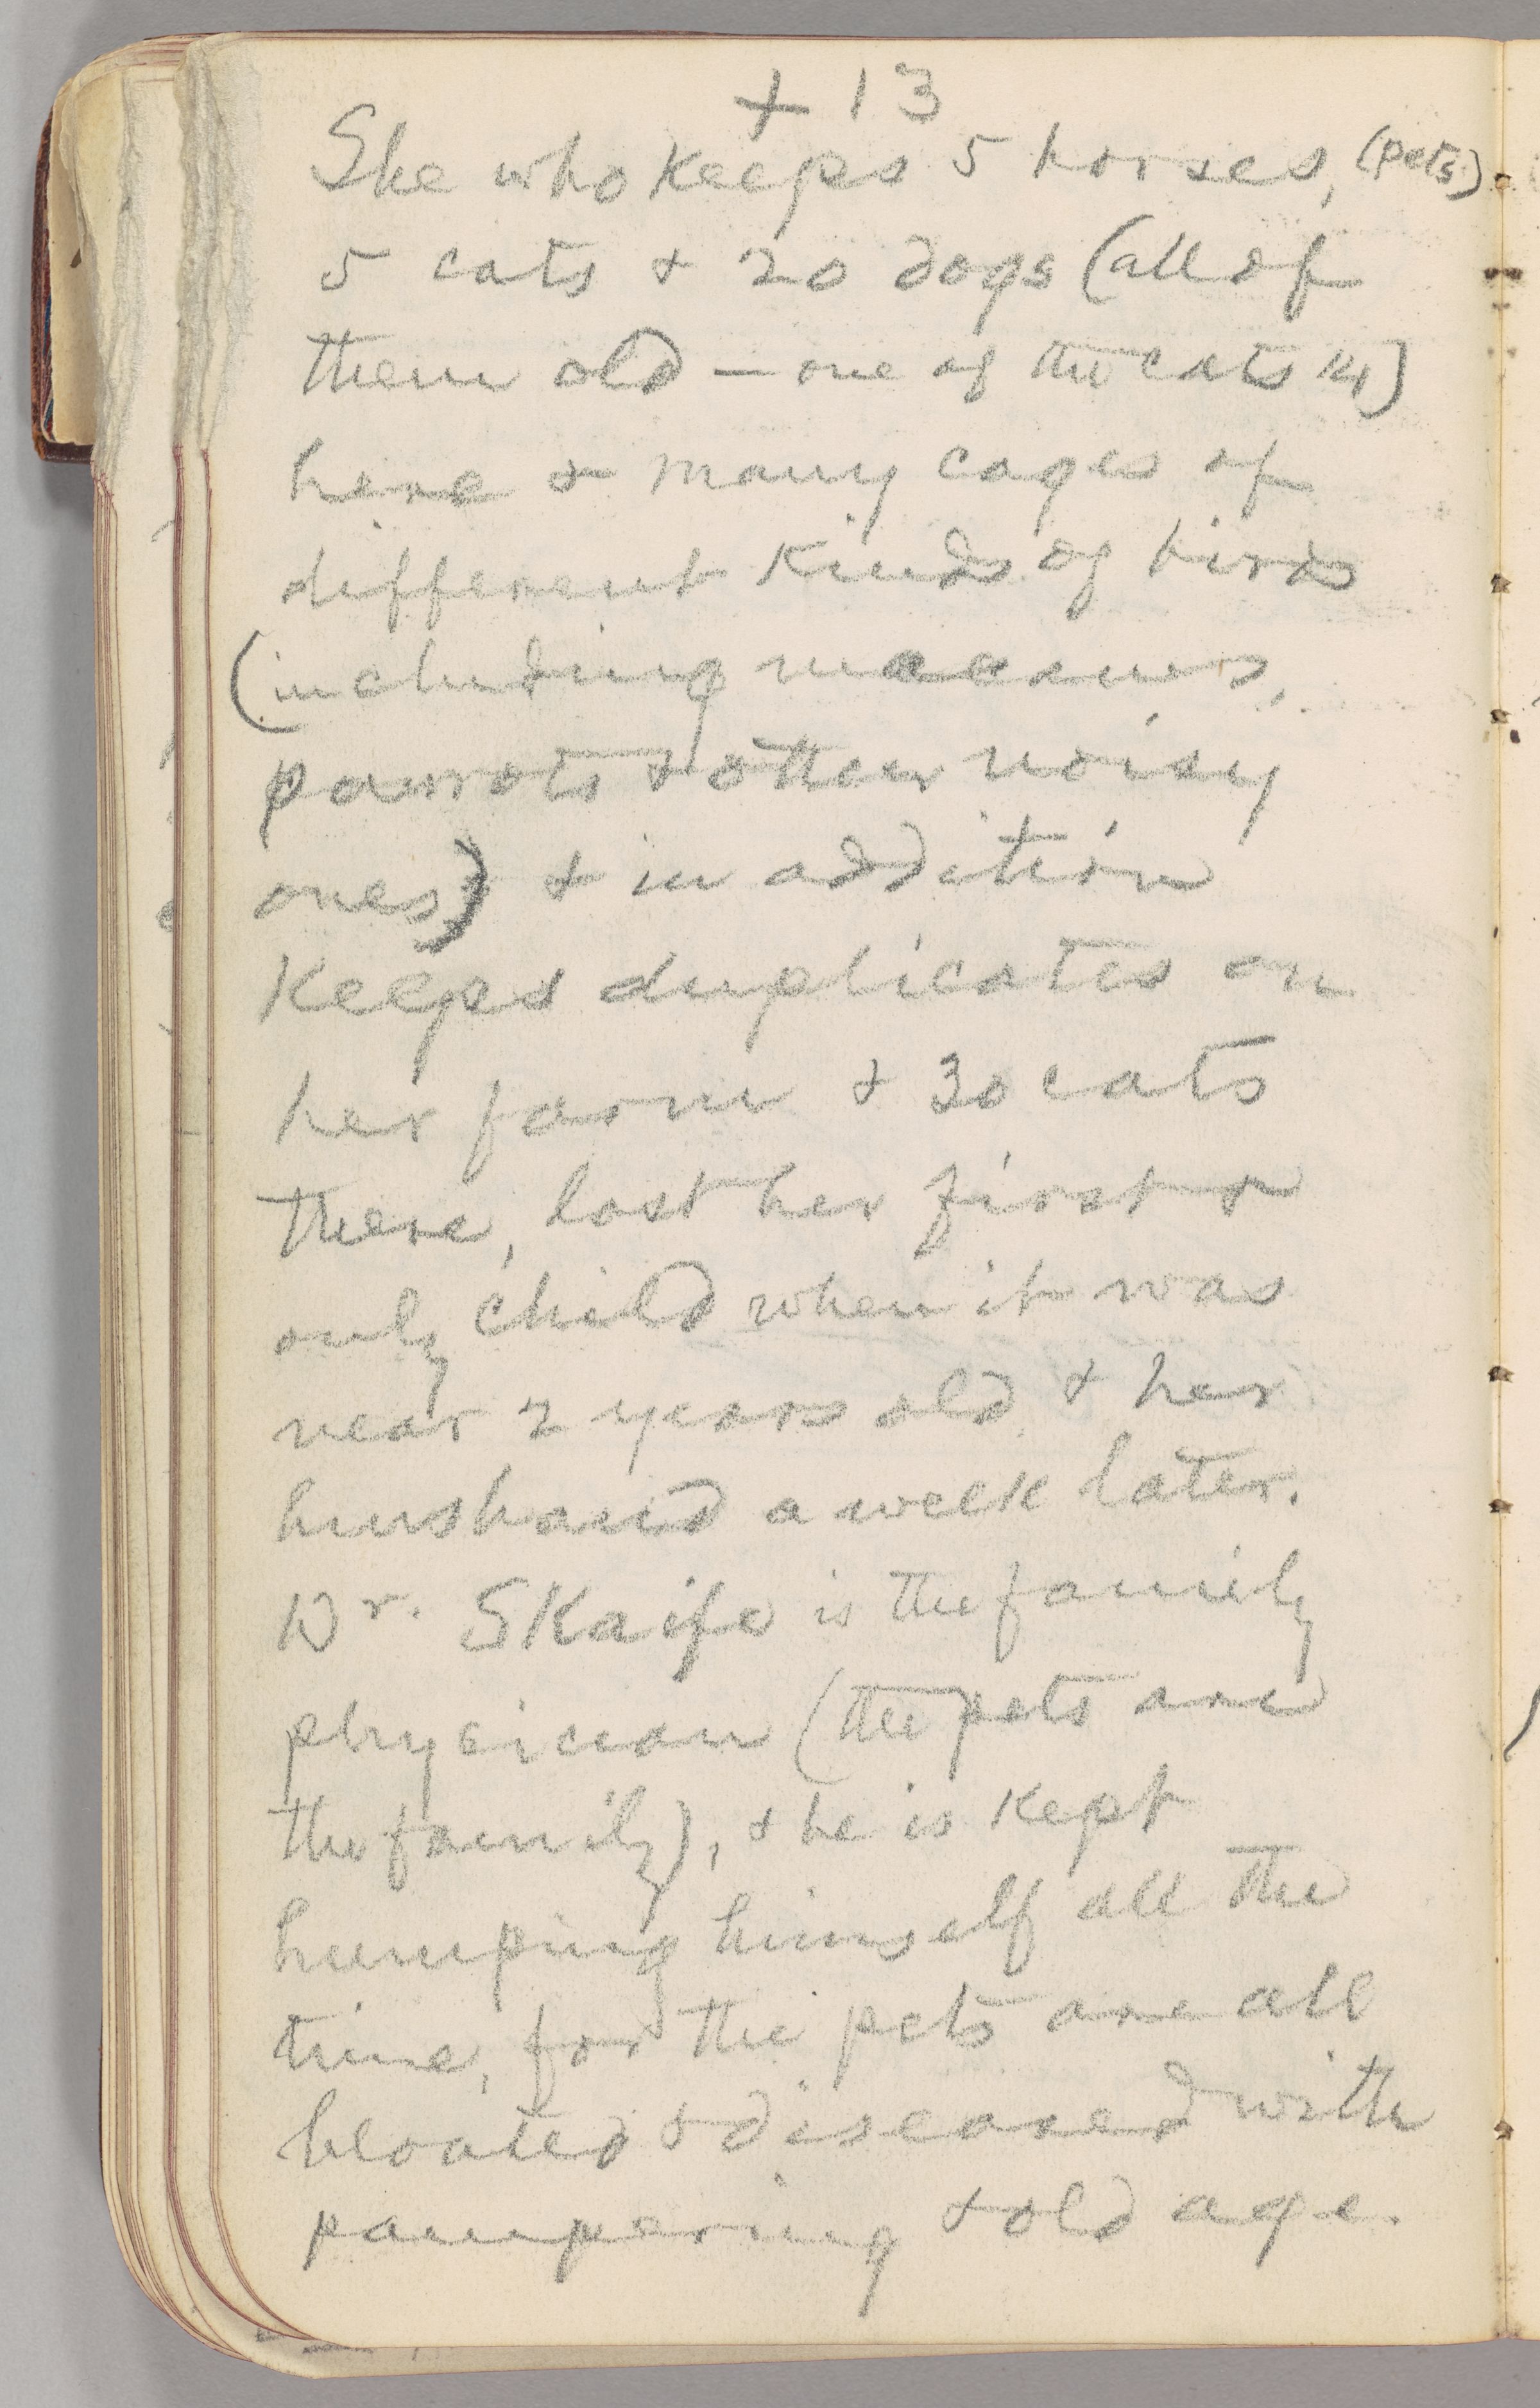 + 13
She who keeps 5 horses, (pets)
5 cats & 20 dogs (all of
them old — one of the cats 14)
here & many cages of
different kinds of birds
(including macaws,
parrots & other noisy
ones) & in addition
keeps duplicates on
her farm & 30 cats
there, lost her first &
only child when it was
near 2 years old, & her
husband a week later.
Dr. Skaife is the family
physician (the pets are
the family), & he is kept
humping himself all the
time, for the pets are all
bloated & diseased with
pampering & old age.